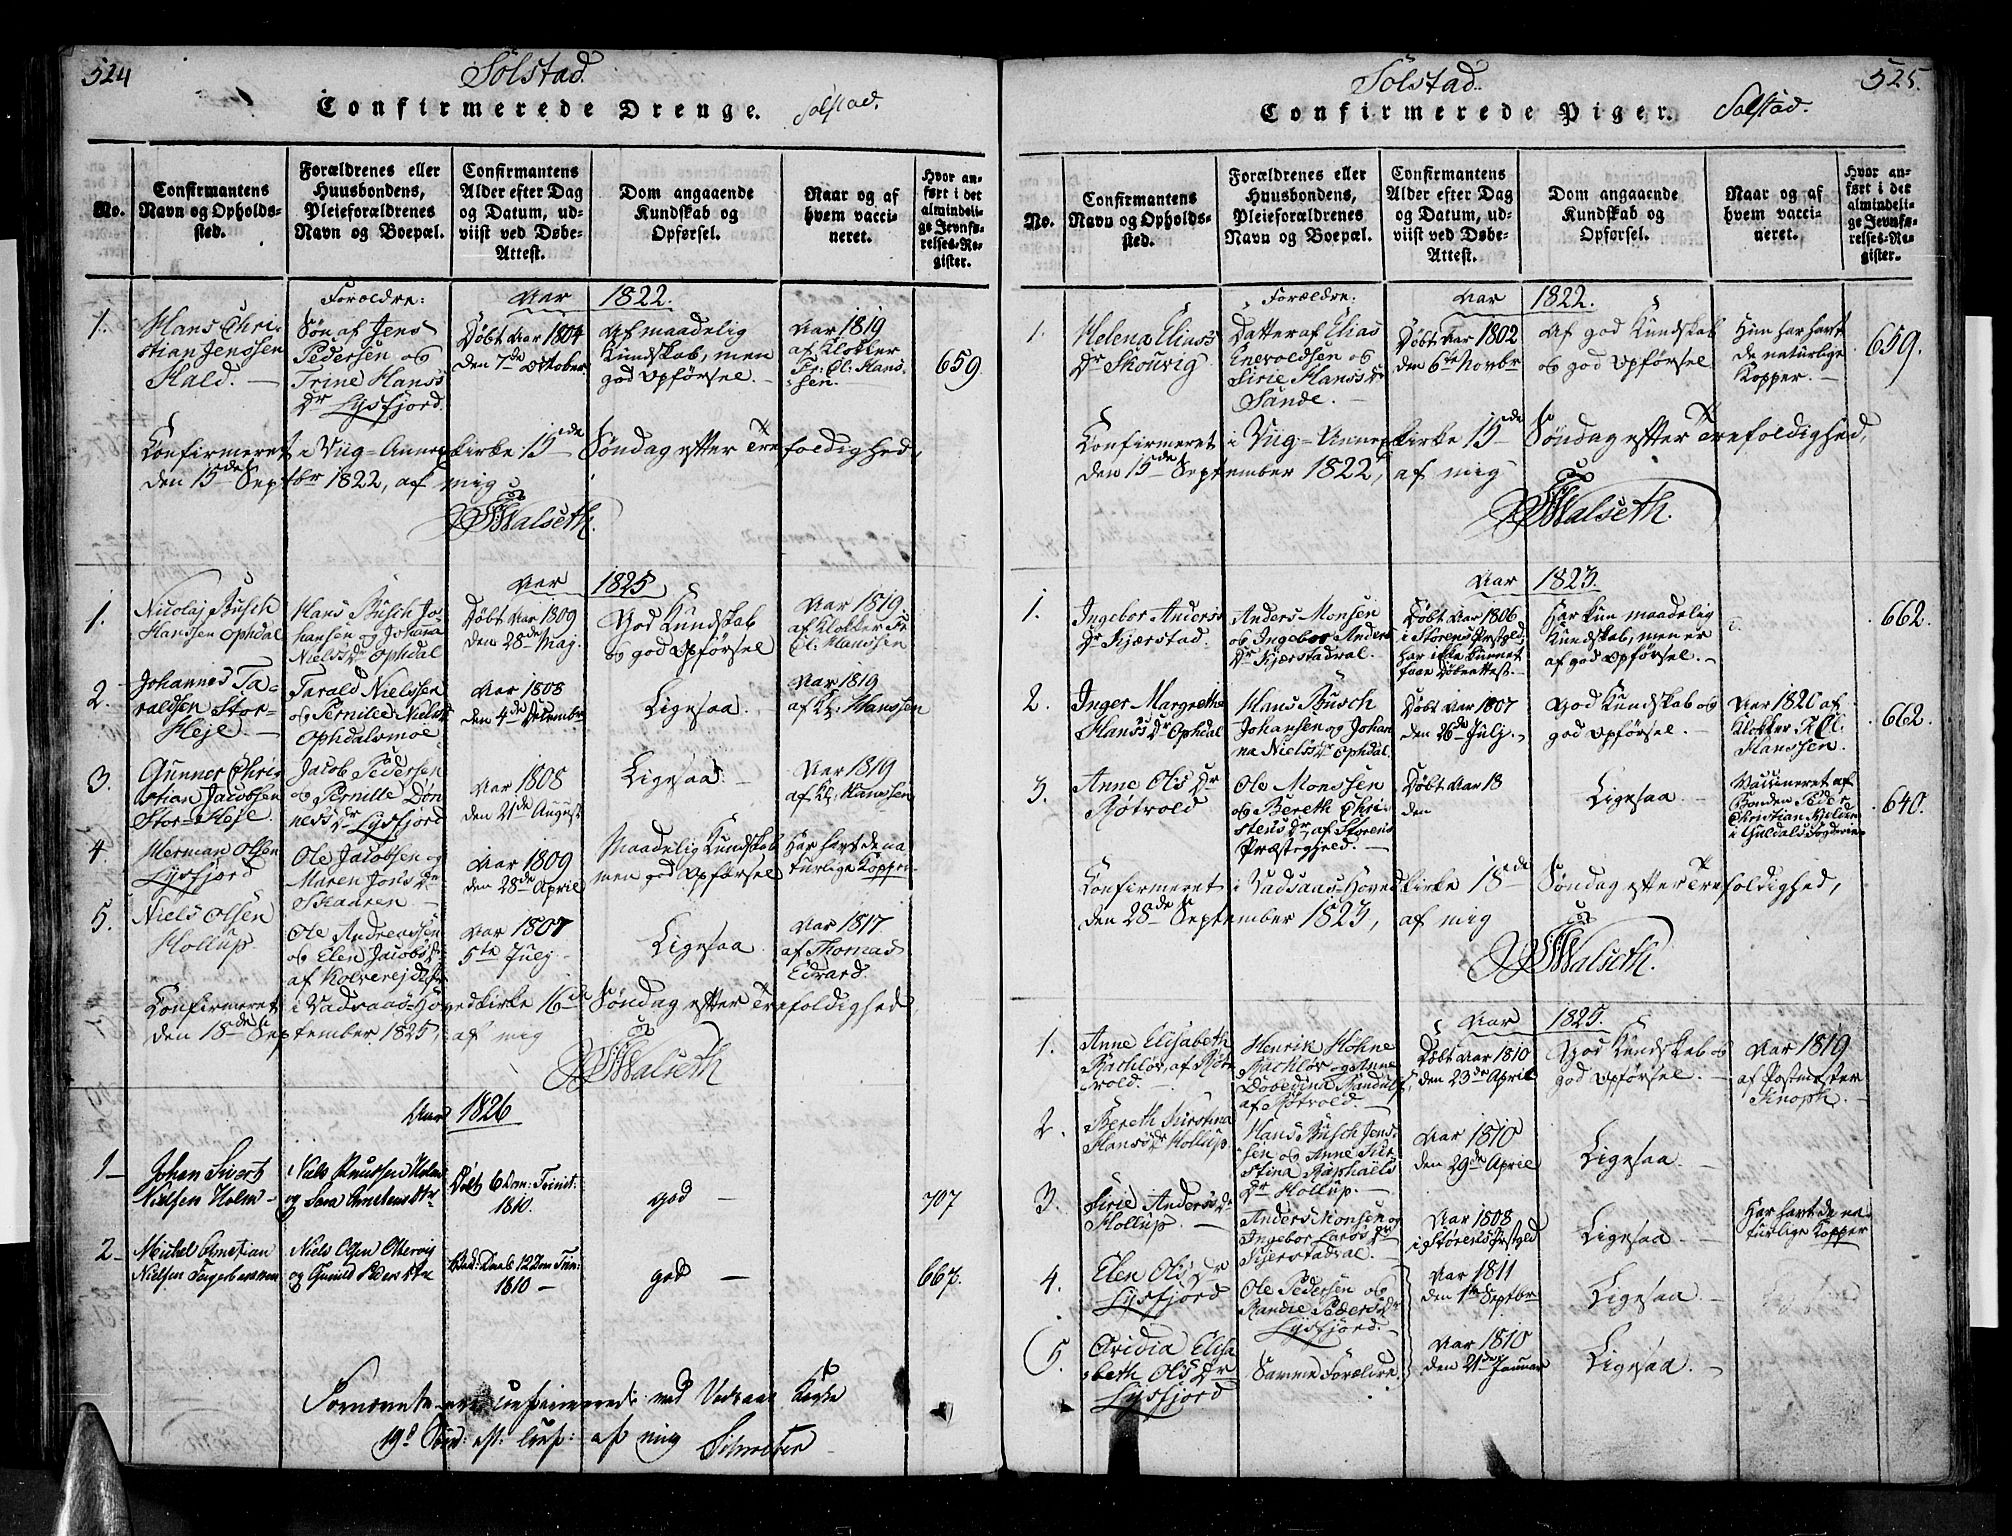 524
Sölstad.
Confirmerede Drenge.
Solstad.
No.
Confirmantens
Navn og Opholds-
sted.
Forældrenes eller
Huusbondens,
Pleieforældrenes
Navn og Boepæl.
Confirmantens
Alder efter Dag
og Datum, ud-
viist ved Døbe-
Attest.
Dom angaaende
Kundskab og
Opførsel.
Naar og af
hvem vacci-
neret.
Hvor an-
ført i det
almindeli-
ge Jevnfø-
relses-Re-
gister.
Aar 1822.
1.
Hans Chri-
stian Jenssen
Hald.
Foroldre:
Søn af Jens
Pedersen og
Trine Hanss
Dr Lysfjord.
Døbt Aar 1804
den 7de October
Af maadelig
Kundskab, men
god Opførsel
Aar 1819
af Klokker
Fr: Cl: Hans
sen.
659
Confirmeret i Viig-Annex kirke 15de Søndag efter Trefoldighed,
den 15de Septbr 1822, af mig
Walseth.
Aar 1825
1.
Nicolaj Busch
Hanssen Ophdal
Hans Busch Jo-
hansen og Johana
Niels Dr Ophdal
Døbt Aar 1809
den 28de Maj.
God Kundskab
og god Opførsel
Aar 1819
af Klokker Fr
Cl: Hanssen
2.
Johannes Ta-
raldsen Stor-
Heje
Tarald Nielssen
og Pernille Niels
Ophdalsmoe
Aar 1808
den 4de Decembr
Ligesaa.
Aar 1819
af Kl: Hanssen
3.
Gunner Chri
stian Jacobsen
Stor-Heje.
Jacob Pedersen
og Pernille Døn
ness Dr Lysfjord
Aar 1808
den 21de August
Ligesaa.
Aar 1819
af Kl: Hanssen
4.
Herman Olsen
Lysfjord
Ole Jacobsen og
Maren Jons Dr
Skaaren
Aar 1809
den 28de April
Maadelig Kundskab
men god Opførsel
Har havt de na
turlige Kopper
5.
Niels Olsen
Hollup.
Ole Andreassen
og Elen Jacobs Dr
af Kolverejd
Aar 1807
5te Julj
Ligesaa.
Aar 1817
af Thomas
Edvard.
Confirmeret i Vadsaas-Hovedkirke 16de Søndag efter Trefoldighed,
den 18de September 1825, af mig
Walseth
Aar 1826
1
Johan
Nielsen Holm
Niels Knussen Holm
og Sara
Døbt 6 Dom: Trinit:
1810.
god
707
2
Michel
Nielsen
Niels Olsen
og Gunild Peders Dtr
12 Dom Trin:
1810
god
667.
med Vadsaas Kirke
19d af mig
525.
Sölstad.
Confirmerede Piger.
Solstad.
No.
Confirmantens
Navn og Opholds-
sted.
Forældrenes eller
Huusbondens,
Pleieforældrenes
Navn og Boepæl.
Confirmantens
Alder efter Dag
og Datum, ud-
viist ved Døbe-
Attest.
Dom angaaende
Kundskab og
Opførsel.
Naar og af
hvem vacci-
neret.
Hvor an-
ført i det
almindeli-
ge Jevnfø-
relses-Re-
gister.
Aar 1822.
1.
Helena Eliass
Dr Skouvig.
Forældre:
Datter af Elias
Enevoldsen og
Sirie Hanss Dr
Sande.
Døbt Aar 1802
den 6te Novbr
Af god Kundskab
og god Opførsel
Hun har havt
de naturlige
Kopper.
659.
Confirmeret i Viig-Annex kirke 15de Søndag efter Trefoldighed,
den 15de September 1822, af mig
Walseth.
Aar 1823.
1.
Ingebor Anders
Dr Kjærstad.
Anders Monsen
og Ingebor Anders
Dr Kjærstadval.
Døbt Aar 1806
i Størens Præstgld
har ikke kunnet
faae Døbeattest.
Har kun maadelig
Kundskab, men er
af god Opførsel.
662.
2.
Inger Margrethe
Hans Dr Ophdal
Hans Busch
Johansen og Johan
na Niels Dr Ophdal.
Døbt Aar 1807
den 26de Julj.
God Kundskab og
god Opførsel.
Aar 1820 af
Klokker F: Cl:
Hanssen.
662.
3.
Anne Ols Dr
Røtvold
Ole Monssen
og Bereth Chri-
stens Dr af Størens
Præstegjeld.
Døbt Aar 18
den
Ligesaa
Vaccineret af
Bonden Peder
Christian Kjelden
i Guldals Fogderie
640.
Confirmeret i Vadsaas-Hovedkirke 18de Søndag efter Trefoldighed,
den 28de September 1823, af mig
Walseth.
Aar 1825.
1.
Anne Elisabeth
Rachløv, af Røt
vold.
Henrik Høhne
Rachløv og Anne
Dovedina Randulf
af Røtvold.
Døbt Aar 1810
den 23de April
God Kundskab og
god Opførsel.
Aar 1819
af Postmester
Knoph.
2.
Bereth Kirstina
Hans Dr Hollup.
Hans Busch Jens-
sen og Anne Kir
stina Raphaels
Dr Hollup.
Aar 1810
den 29de April
Ligesaa
3.
Sirie Anders Dr
Hollup.
Anders Monsen og
Ingebor Lars Dr
Kjerstadval.
Aar 1808
i Størens Præstgld
Ligesaa
Har havt de na-
turlige Kopper
4.
Elen Ols Dr
Lysfjord
Ole Pedersen og
Randie Peders Dr
Lysfjord.
Aar 1811
den 1ste Septbr
Ligesaa
5.
Aridia Elisa
beth Ols Dr
Lysfjord
Samme Forældre
Aar 1810
den 21de Januar
Ligesaa.